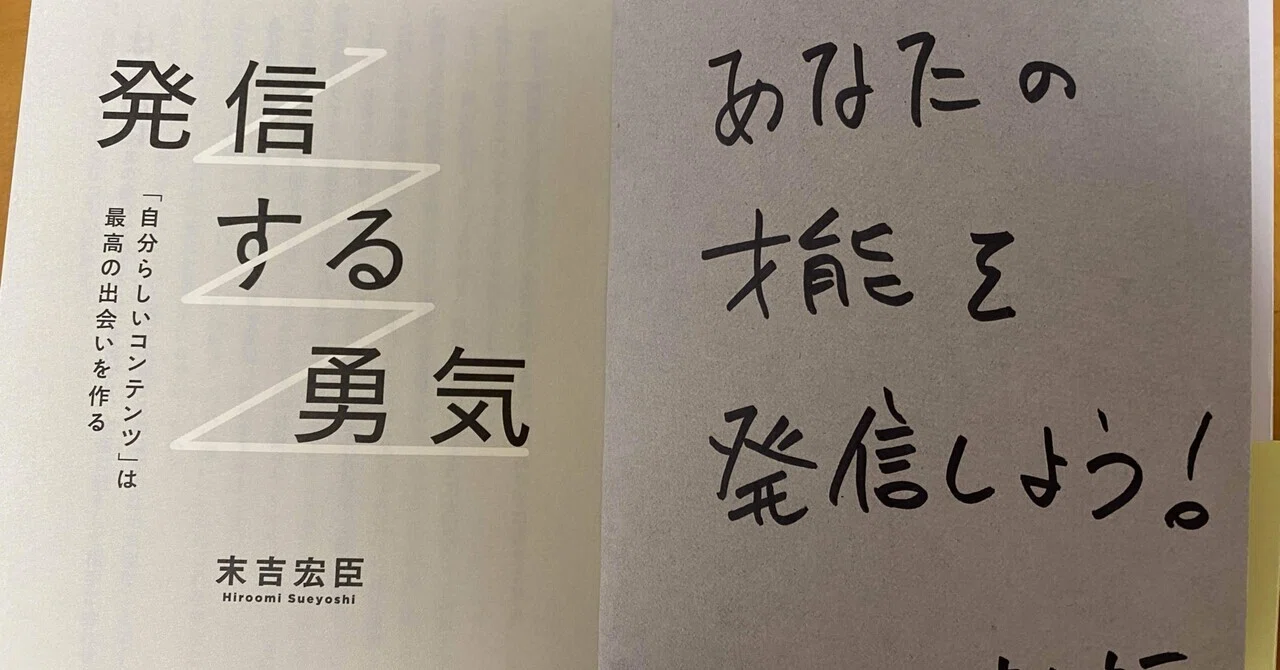 発信
する
勇気
「自分らしいコンテンツ」は
最高の出会いを作る
末吉宏臣
Hiroomi Sueyoshi
あなたの
才能を
発信しよう!